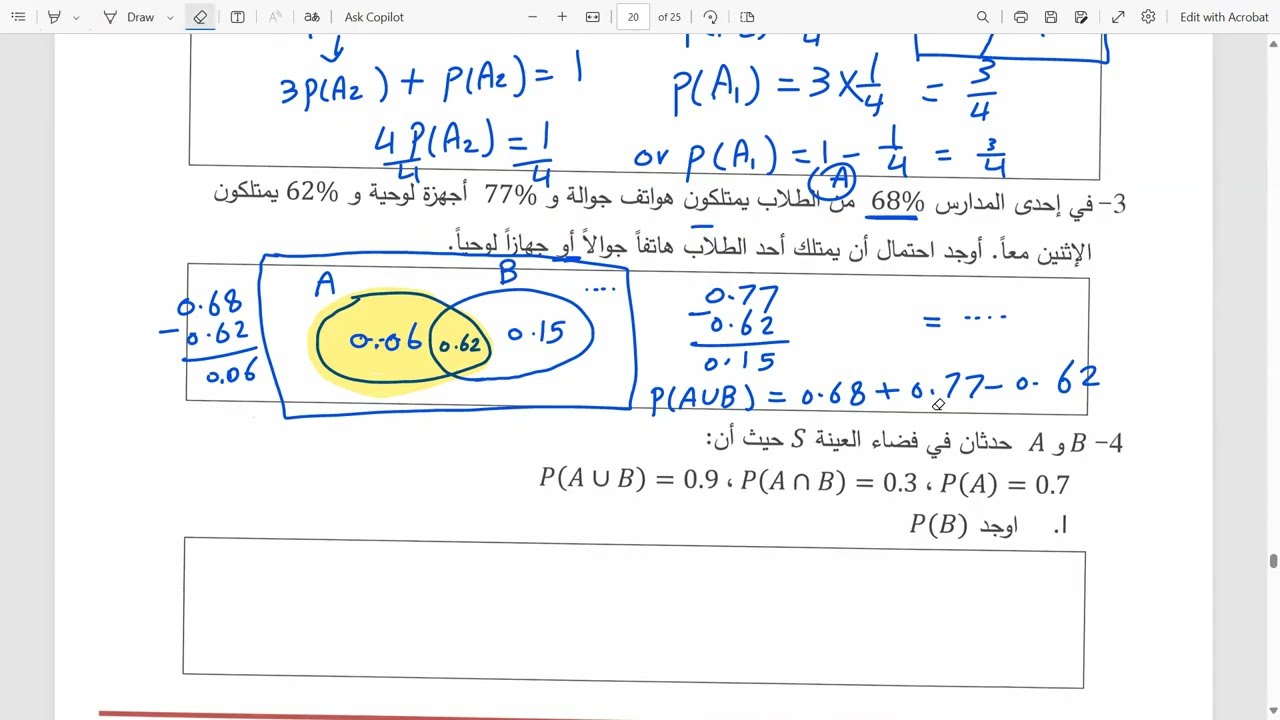 Draw
Ask Copilot
20 of 25
Edit with Acrobat
3P(A₂) + P(A₂) = 1
P(A₁) = 3 × 1/4 = 3/4
4P(A₂)/4 = 1/4
or P(A₁) = 1 - 1/4 = 3/4
A
3- في إحدى المدارس 68% من الطلاب يمتلكون هواتف جوالة و 77% أجهزة لوحية و 62% يمتلكون
الإثنين معاً. أوجد احتمال أن يمتلك أحد الطلاب هاتفاً جوالاً أو جهازاً لوحياً.
0.68
- 0.62
0.06
A B ....
0.06 0.62 0.15
0.77
- 0.62
0.15
= ....
P(A∪B) = 0.68 + 0.77 - 0.62
4- B و A حدثان في فضاء العينة S حيث أن:
P(A ∪ B) = 0.9 ، P(A ∩ B) = 0.3 ، P(A) = 0.7
ا. اوجد P(B)